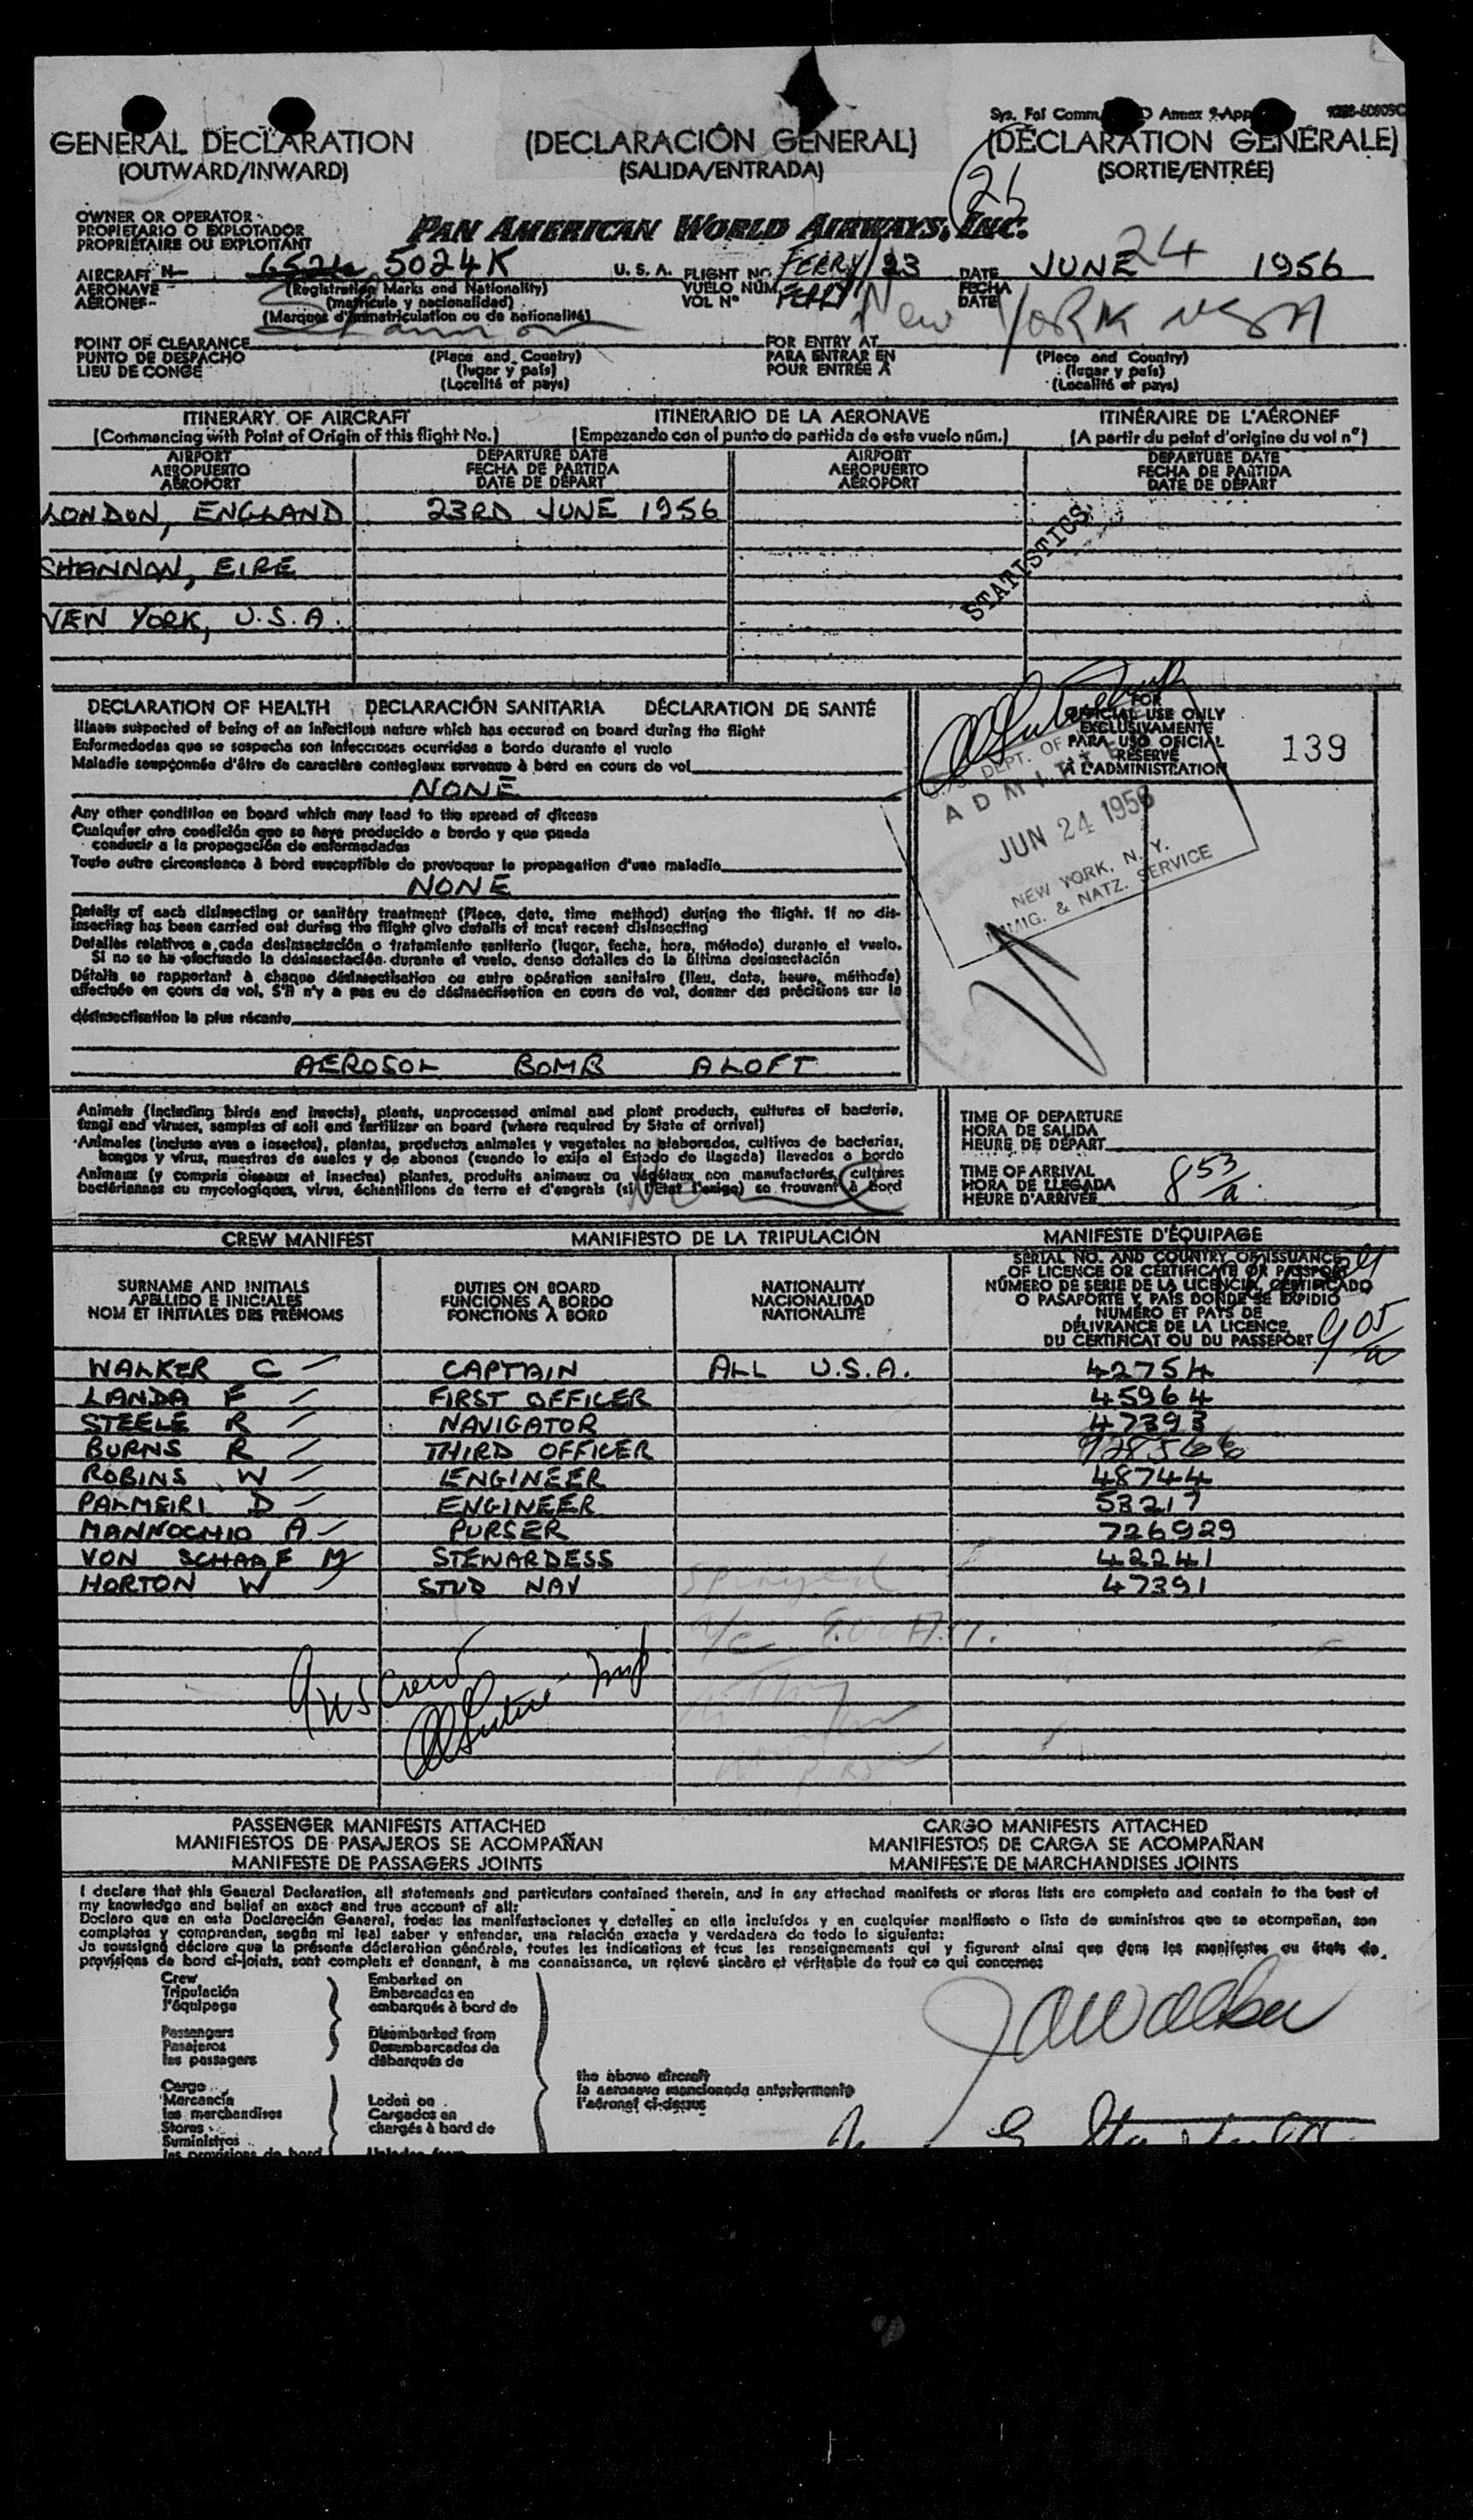 Sys. Fal Comm. Annex 9-App
GENERAL DECLARATION (DECLARACIÓN GENERAL) (DÉCLARATION GÉNÉRALE)
(OUTWARD/INWARD) (SALIDA/ENTRADA) (SORTIE/ENTRÉE)
OWNER OR OPERATOR
PROPIETARIO O EXPLOTADOR
PROPRIÉTAIRE OU EXPLOITANT
PAN AMERICAN WORLD AIRWAYS, INC.
AIRCRAFT N- 5024K U. S. A. FLIGHT NO. FERRY/23 DATE JUNE 24 1956
AERONAVE (Registration Marks and Nationality) VUELO NÚM. FERRY FECHA
AÉRONEF- (matrícula y nacionalidad) VOL Nº DATE
(Marques d'immatriculation ou de nationalité)
Shannon New YORK USA
POINT OF CLEARANCE FOR ENTRY AT
PUNTO DE DESPACHO (Place and Country) PARA ENTRAR EN (Place and Country)
LIEU DE CONGÉ (lugar y país) POUR ENTRÉE A (lugar y país)
(Localité et pays) (Localité et pays)
ITINERARY OF AIRCRAFT ITINERARIO DE LA AERONAVE ITINÉRAIRE DE L'AÉRONEF
(Commencing with Point of Origin of this flight No.) (Empezando con el punto de partida de este vuelo núm.) (A partir du point d'origine du vol nº)
AIRPORT DEPARTURE DATE AIRPORT DEPARTURE DATE
AEROPUERTO FECHA DE PARTIDA AEROPUERTO FECHA DE PARTIDA
AÉROPORT DATE DE DÉPART AÉROPORT DATE DE DÉPART
LONDON, ENGLAND 23RD JUNE 1956
STATISTICS
SHANNAN, EIRE
NEW YORK, U.S.A.
DECLARATION OF HEALTH DECLARACIÓN SANITARIA DÉCLARATION DE SANTÉ
Illness suspected of being of an infectious nature which has occured on board during the flight
Enfermedades que se sospecha son infecciosas ocurridas a bordo durante el vuelo
Maladie soupçonnée d'être de caractère contagieux survenue à bord en cours de vol
NONE
Any other condition on board which may lead to the spread of disease
Cualquier otra condición que se haya producido a bordo y que pueda
conducir a la propagación de enfermedades
Toute autre circonstance à bord susceptible de provoquer la propagation d'une maladie
NONE
Details of each disinsecting or sanitary treatment (Place, date, time method) during the flight. If no dis-
insecting has been carried out during the flight give details of most recent disinsecting
Detalles relativos a cada desinsectación o tratamiento sanitario (lugar, fecha, hora, método) durante el vuelo.
Si no se ha efectuado la desinsectación durante el vuelo, dense detalles de la última desinsectación
Détails se rapportant à chaque désinsectisation ou autre opération sanitaire (lieu, date, heure, méthode)
effectuée en cours de vol. S'il n'y a pas eu de désinsectisation en cours de vol, donner des précisions sur la
désinsectisation la plus récente
AEROSOL BOMB ALOFT
FOR
OFFICIAL USE ONLY
EXCLUSIVAMENTE
PARA USO OFICIAL
RÉSERVÉ
À L'ADMINISTRATION
139
U. S. DEPT. OF
ADMITTED
JUN 24 1956
NEW YORK, N. Y.
IMMIG. & NATZ. SERVICE
Animals (including birds and insects), plants, unprocessed animal and plant products, cultures of bacteria,
fungi and viruses, samples of soil and fertilizer on board (where required by State of arrival)
Animales (incluso aves e insectos), plantas, productos animales y vegetales no elaborados, cultivos de bacterias,
hongos y virus, muestras de suelos y de abonos (cuando lo exija el Estado de llegada) llevados a bordo
Animaux (y compris oiseaux et insectes) plantes, produits animaux ou végétaux non manufacturés, cultures
bactériennes ou mycologiques, virus, échantillons de terre et d'engrais (si l'État l'exige) se trouvant à bord
TIME OF DEPARTURE
HORA DE SALIDA
HEURE DE DÉPART
TIME OF ARRIVAL
HORA DE LLEGADA
HEURE D'ARRIVÉE
853/a
CREW MANIFEST MANIFIESTO DE LA TRIPULACIÓN MANIFESTE D'ÉQUIPAGE
SURNAME AND INITIALS
APELLIDO E INICIALES
NOM ET INITIALES DES PRÉNOMS
DUTIES ON BOARD
FUNCIONES A BORDO
FONCTIONS À BORD
NATIONALITY
NACIONALIDAD
NATIONALITÉ
SERIAL NO. AND COUNTRY OF ISSUANCE
OF LICENCE OR CERTIFICATE OR PASSPORT
NÚMERO DE SERIE DE LA LICENCIA, CERTIFICADO
O PASAPORTE Y PAÍS DONDE SE EXPIDIÓ
NUMÉRO ET PAYS DE
DÉLIVRANCE DE LA LICENCE,
DU CERTIFICAT OU DU PASSEPORT
905/a
WALKER C CAPTAIN ALL U.S.A. 42754
LANDA F FIRST OFFICER 45964
STEELE R NAVIGATOR 47393
BURNS R THIRD OFFICER 928566
ROBINS W ENGINEER 48744
PALMEIRI D ENGINEER 53217
MANNOCHIO A PURSER 726929
VON SCHAAF M STEWARDESS 42241
HORTON W STUD NAV 47391
Sprayed
9 US Crew
PASSENGER MANIFESTS ATTACHED CARGO MANIFESTS ATTACHED
MANIFIESTOS DE PASAJEROS SE ACOMPAÑAN MANIFIESTOS DE CARGA SE ACOMPAÑAN
MANIFESTE DE PASSAGERS JOINTS MANIFESTE DE MARCHANDISES JOINTS
I declare that this General Declaration, all statements and particulars contained therein, and in any attached manifests or stores lists are complete and contain to the best of
my knowledge and belief an exact and true account of all:
Declaro que en esta Declaración General, todas las manifestaciones y detalles en ella incluídos y en cualquier manifiesto o lista de suministros que se acompañan, son
completos y comprenden, según mi leal saber y entender, una relación exacta y verdadera de todo lo siguiente:
Je soussigné déclare que la présente déclaration générale, toutes les indications et tous les renseignements qui y figurent ainsi que dans les manifestes ou états de
provisions de bord ci-joints, sont complets et donnent, à ma connaissance, un relevé sincère et véritable de tout ce qui concerne:
Crew Embarked on
Tripulación Embarcados en
l'équipage embarqués à bord de
Passengers Disembarked from
Pasajeros Desembarcados de
les passagers débarqués de
the above aircraft
la aeronave mencionada anteriormente
l'aéronef ci-dessus
Cargo
Mercancía Loaded on
les marchandises Cargados en
Stores chargés à bord de
Suministros
les provisions de bord Unladen from
JaWalker